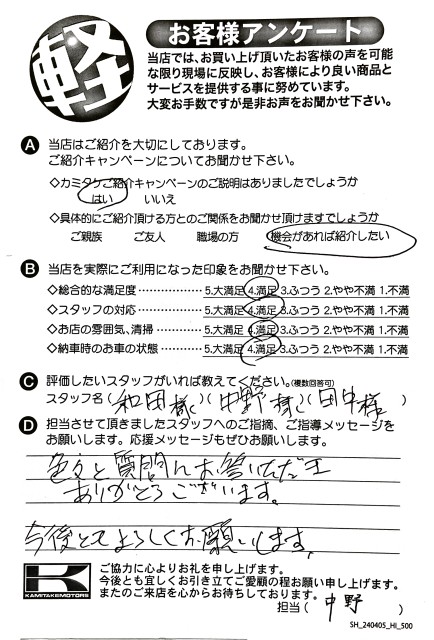 軽
お客様アンケート
当店では、お買い上げ頂いたお客様の声を可能
な限り現場に反映し、お客様により良い商品と
サービスを提供する事に努めています。
大変お手数ですが是非お声をお聞かせ下さい。
A 当店はご紹介を大切にしております。
ご紹介キャンペーンについてお聞かせ下さい。
◇カミタケご紹介キャンペーンのご説明はありましたでしょうか
はい いいえ
◇具体的にご紹介頂ける方とのご関係をお聞かせ頂けますでしょうか
ご親族 ご友人 職場の方 機会があれば紹介したい
B 当店を実際にご利用になった印象をお聞かせ下さい。
◇総合的な満足度 5.大満足 4.満足 3.ふつう 2.やや不満 1.不満
◇スタッフの対応 5.大満足 4.満足 3.ふつう 2.やや不満 1.不満
◇お店の雰囲気、清掃 5.大満足 4.満足 3.ふつう 2.やや不満 1.不満
◇納車時のお車の状態 5.大満足 4.満足 3.ふつう 2.やや不満 1.不満
C 評価したいスタッフがいれば教えてください。(複数回答可)
スタッフ名(和田様)(中野様)(田中様)
D 担当させて頂きましたスタッフへのご指摘、ご指導メッセージを
お願いします。応援メッセージもぜひお願いします。
色々と質問にお答いただき
ありがとうございます。
今後ともよろしくお願いします
K
KAMITAKEMOTORS
ご協力に心よりお礼を申し上げます。
今後とも宜しくお引き立てご愛顧の程お願い申し上げます。
またのご来店を心からお待ちしております。
担当(中野)
SH_240405_HI_500